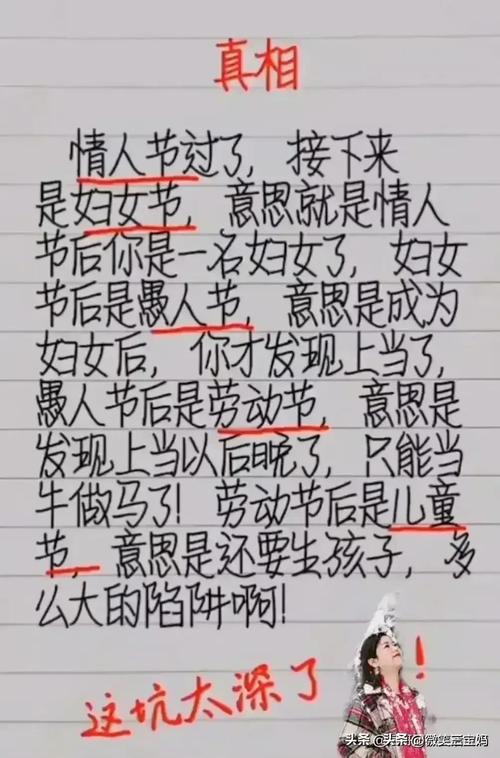 真相
情人节过了，接下来
是妇女节，意思就是情人
节后你是一名妇女了，妇女
节后是愚人节，意思是成为
妇女后，你才发现上当了，
愚人节后是劳动节，意思是
发现上当以后晚了，只能当
牛做马了！劳动节后是儿童
节，意思是还要生孩子，多
么大的陷阱啊！
这坑太深了！
头条 @头条@微美舌宝妈